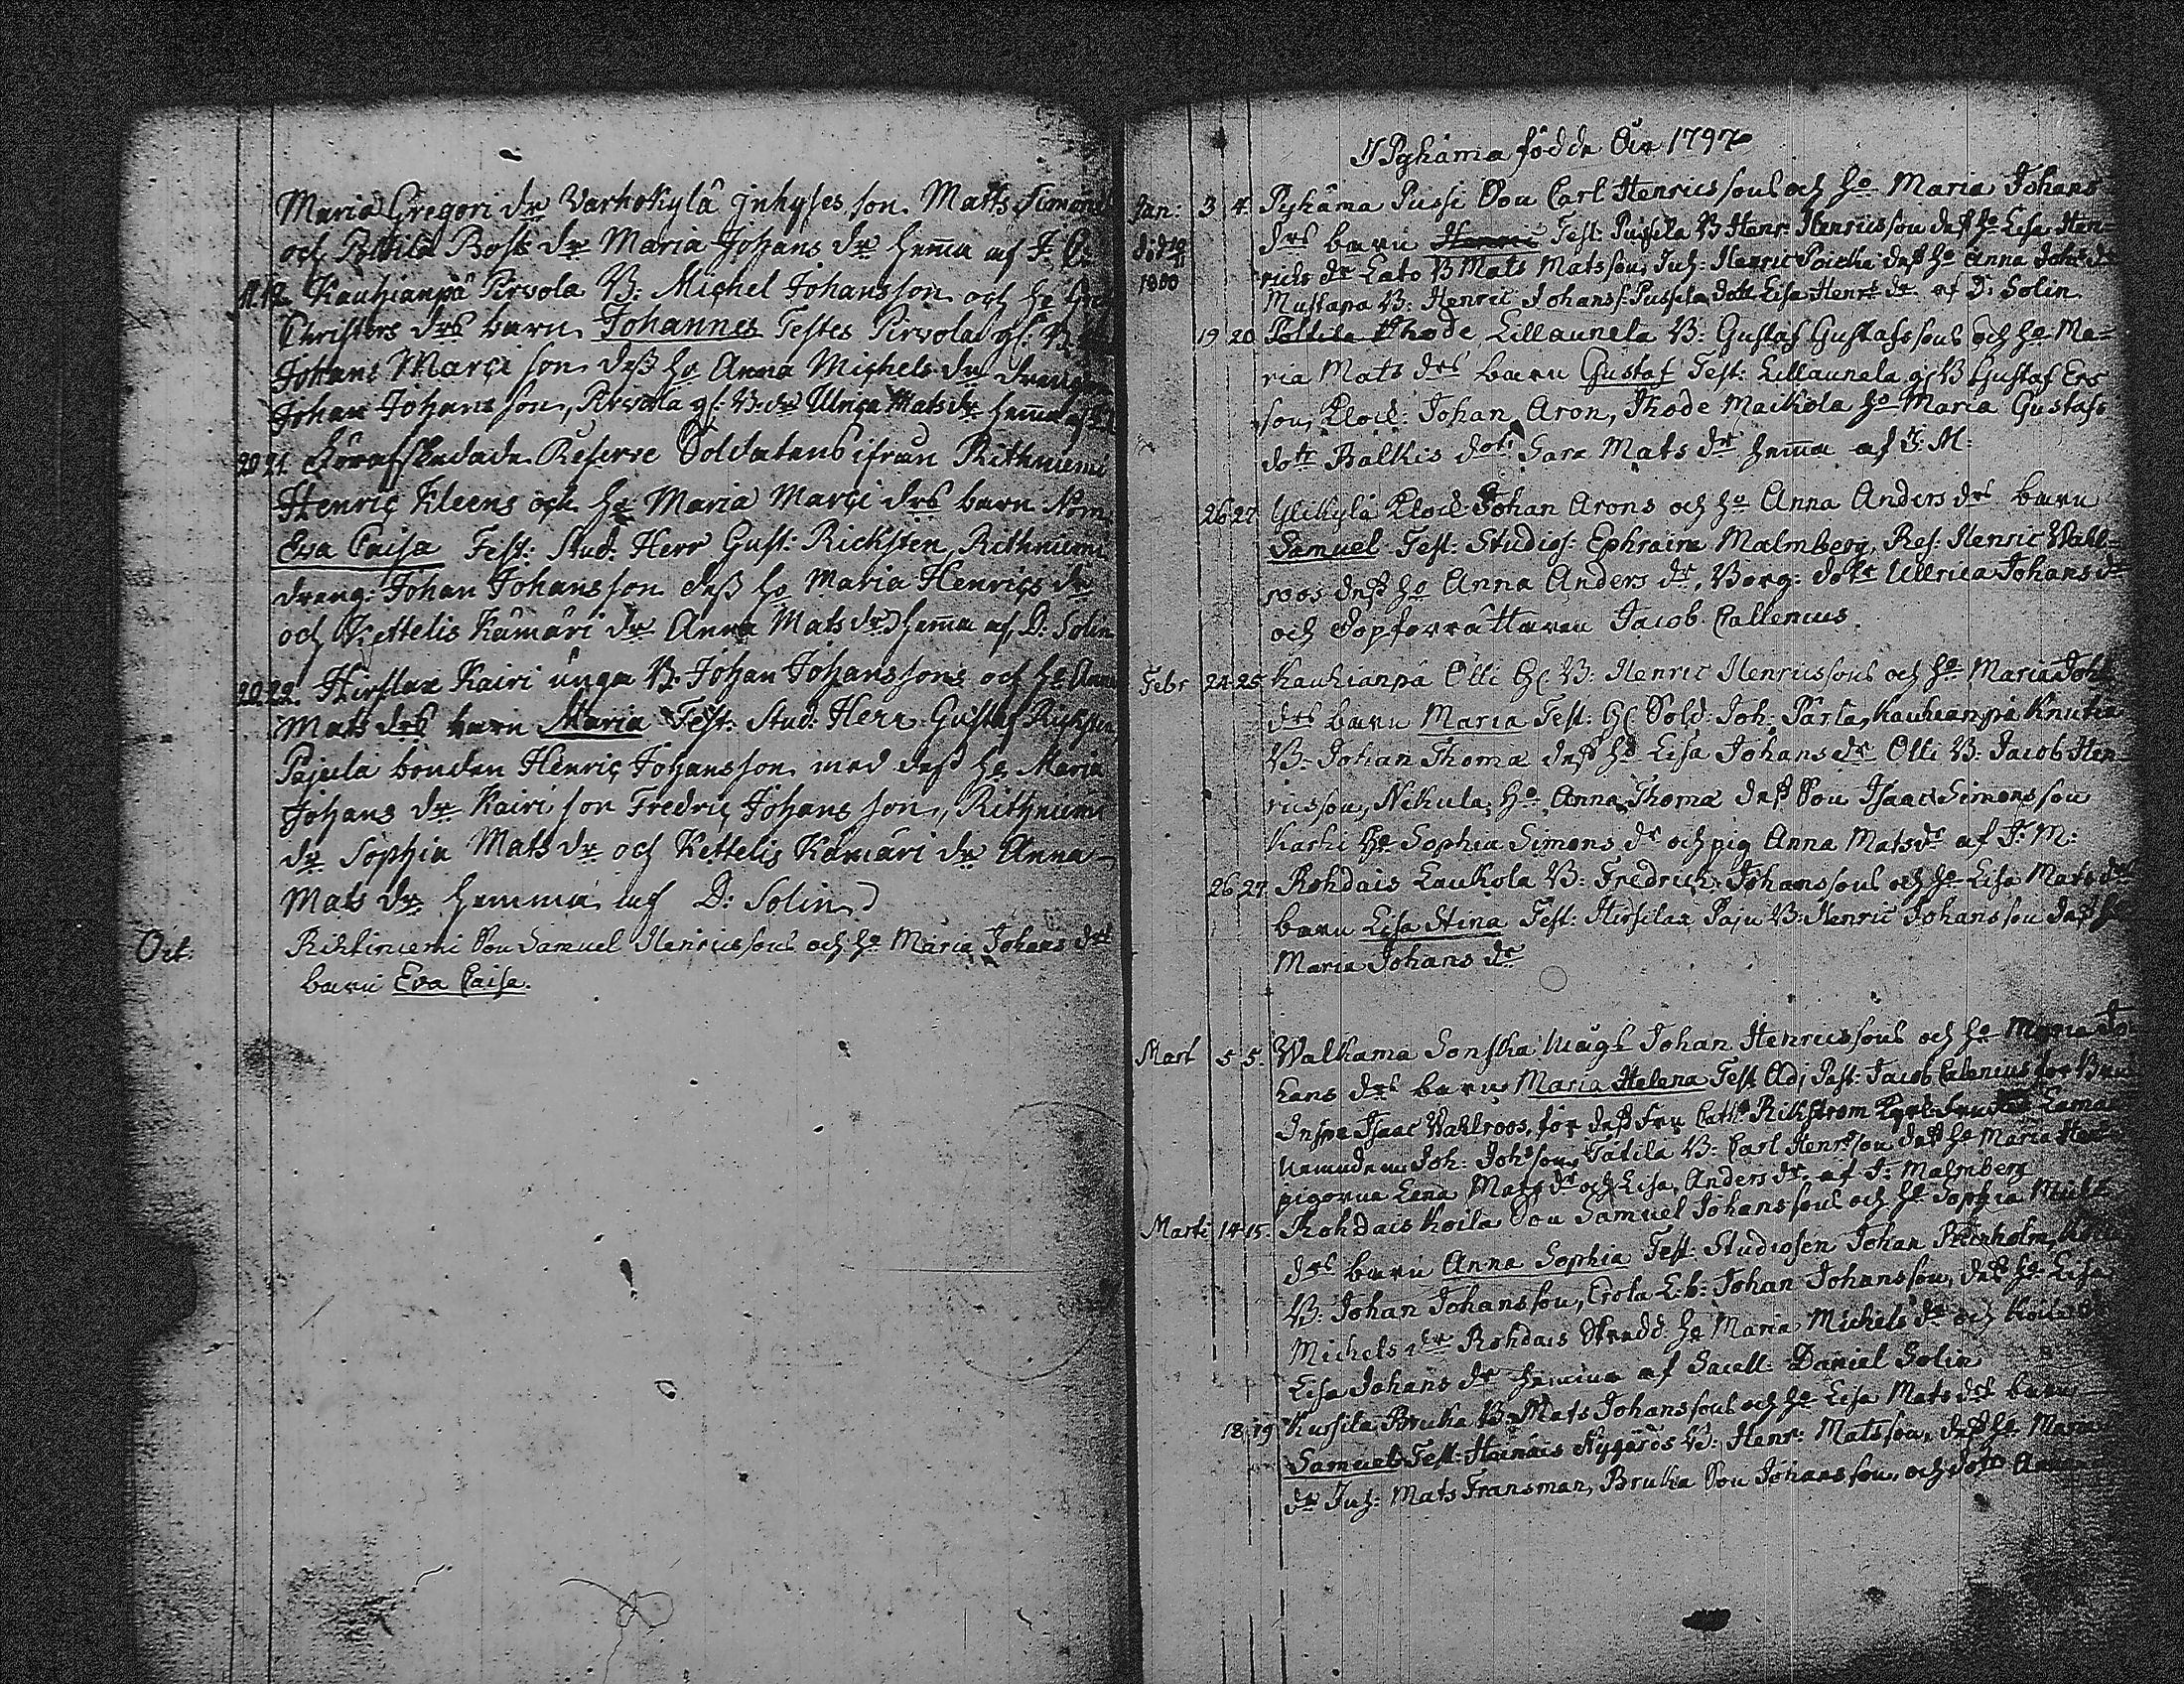 Maria Gregori dr Varhokylä Inhyses son Matts Simons
och Pottila Bosk dr Maria Johans dr hema af J.
11. 12. Kauhianpä Pirvola B: Michel Johansson och ho
Christers drs barn Johannes Testes Pirvola gl: B.
Johans Marci son dess ho Anna Michels dr drengen
Johan Johans son, Pirvola gl: B: dr Ulrica Mats dr hema af
20 21. Förafskedade Reserve Soldatens ifrån Rithniemi
Henric Kleens och ho Maria Marci drs barn
Eva Caisa Test: Stud: Herr Gust: Ricksten, Rithniemi
dreng: Johan Johansson dess ho Maria Henrics dr
och Kettelis Kämäri dr Anna Mats dr hema af D: Solin
20 22. Hirslax Kairi unga B. Johan Johanssons och ho Anna
Mats drs barn Maria Test. Stud: Herr Gustaf
Pajula bonden Henric Johansson med dess ho Maria
Johans dr Kairi son Fredric Johans son, Rithniemi
dr Sophia Mats dr och Kettelis Kämäri dr Anna
Mats dr hemma af D: Solin
Oct: Rihtiniemi Son Samuel Henricssons och ho Maria Johans drs
barn Eva Caisa.
I Pyhäma födde År 1797
Jan: 3 4. Pyhäma Pussi Son Carl Henricssons och ho Maria Johans
drs barn Henric Test: Pussila B Henr: Henricsson dess ho Lisa Hen-
rics dr Lato B Mats Matsson, Inh: Henric dess ho Anna Joh: dr
1800 Mustapa B: Henric Johanss: Pussila dott Lisa Henrs dr af D: Solin
19 20 Tottila Rhode Lillaunela B: Gustaf Gustafssons och ho Ma-
ria Mats drs barn Gustaf Test: Lillaunela gl B Gustaf Ers
son, Klock: Johan Aron, Rhode Maikola ho Maria Gustafs
dotr Balkis dotr Sara Mats dr hema af J. M:
26 27. Ylikylä Klock Johan Arons och ho Anna Anders drs barn
Samuel Test: Studios: Ephraim Malmberg, Res: Henric Wahl-
roos dess ho Anna Anders dr, Borg: dotr Ullrica Johans dr
och Dopförrättaren Jacob Callenius.
Febr 24 25 Kauhianpä Olli Gl B: Henric Henricssons och ho Maria Joh:
drs barn Maria Test: Gl Sold: Joh: Pärla, Kauhianpä Knutila
B: Johan Thomæ dess ho Lisa Johans dr Olli B: Jacob Hen-
ricsson, Nikula ho Anna Thomæ dess Son Isaac Simonsson
Karhi ho Sophia Simons dr och pig Anna Mats dr af J: M:
26 27. Rohdais Laukola B: Fredrich Johanssons och ho Lisa Mats drs
barn Lisa Stina Test: Hirsilax Paju B: Henric Johansson dess ho
Maria Johans dr
Mart 5 5. Walkama Sonska Johan Henricssons och ho Maria Jo-
hans drs barn Maria Helena Test Adj Past: Jacob Calenius för
Inspe Isaac Wahlroos, för dess Fru Cath: Rikström
Joh: Johsson, Tatila B: Carl Henrsson dess ho Maria
pigorna Lena Mats dr och Lisa Anders dr af J: Malmberg
Marti 14 15. Rohdais Koila Son Samuel Johanssons och ho Sophia
drs barn Anna Sophia Test: Studiosen Johan
B: Johan Johansson, Erola L:b: Johan Johansson, dess ho Lisa
Michels dr Rohdais Skradd: ho Maria Michels dr och Koila
Lisa Johans dr hemma af Sacell: Daniel Solin
18 19 Kursila Bruka B: Mats Johanssons och ho Lisa Mats drs barn
Samuel Test: Heinäis Nygårds B: Henr: Matsson, dess ho Maria
dr Inh: Mats Fransman, Bruka Son Johansson, och dotr